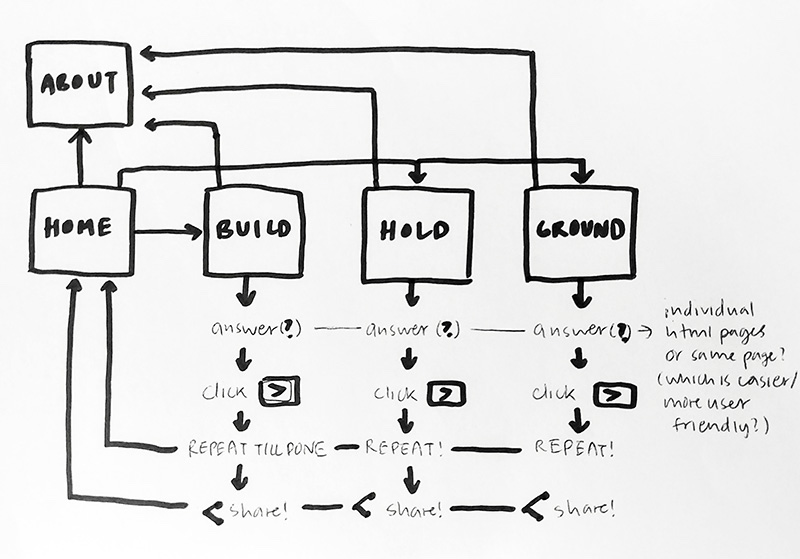 ABOUT
HOME
BUILD
HOLD
GROUND
answer(?)
answer(?)
answer(?)
individual
html pages
or same page?
(which is easier/
more user
friendly?)
click >
click >
click >
REPEAT TILL DONE
REPEAT!
REPEAT!
share!
share!
share!